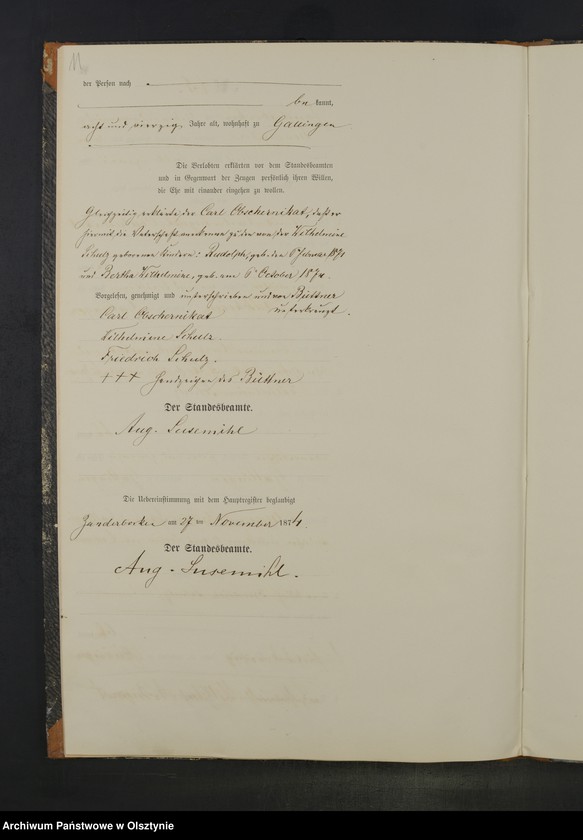 11
der Person nach
bekannt,
acht und vierzig Jahre alt, wohnhaft zu Gallingen
Die Verlobten erklärten vor dem Standesbeamten
und in Gegenwart der Zeugen persönlich ihren Willen,
die Ehe mit einander eingehen zu wollen.
Gleichzeitig erklärte der Carl Obschernikat, daß er
hiermit die Vaterschaft anerkenne zu den von der Wilhelmine
Schulz geborenen Kindern: Rudolph, geb. den 6 Februar 1871
und Bertha Wilhelmine, geb. am 6 October 1874.
Vorgelesen, genehmigt und unterschrieben und von Büttner
unterkreuzt.
Carl Obschernikat
Wilhelmine Schulz.
Friedrich Schulz.
+++ Handzeichen des Büttner
Der Standesbeamte.
Aug. Susemihl
Die Uebereinstimmung mit dem Hauptregister beglaubigt
am 27 ten November 1874.
Der Standesbeamte.
Aug. Susemihl.
Archiwum Państwowe w Olsztynie